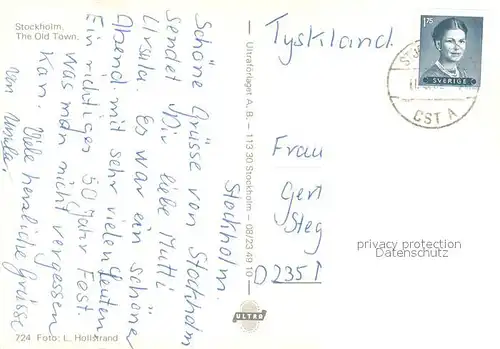 Stockholm,
The Old Town.
Stockholm.
Schöne Grüsse von Stockholm
sendet Dir liebe Mutti
Ursula. Es war ein schöner
Abend mit sehr vielen Leuten
Ein richtiger 50 Jahr Fest.
was man nicht vergessen
Kan. Viele herzliche Grüsse
von Ursula.
724 Foto: L. Hollstrand
Ultraförlaget A.B. – 113 30 Stockholm – 08/23 49 10
ULTRA
Tyskland
1,75
SVERIGE
CST A
Frau
Gert
Steg
D 2351
privacy protection
Datenschutz